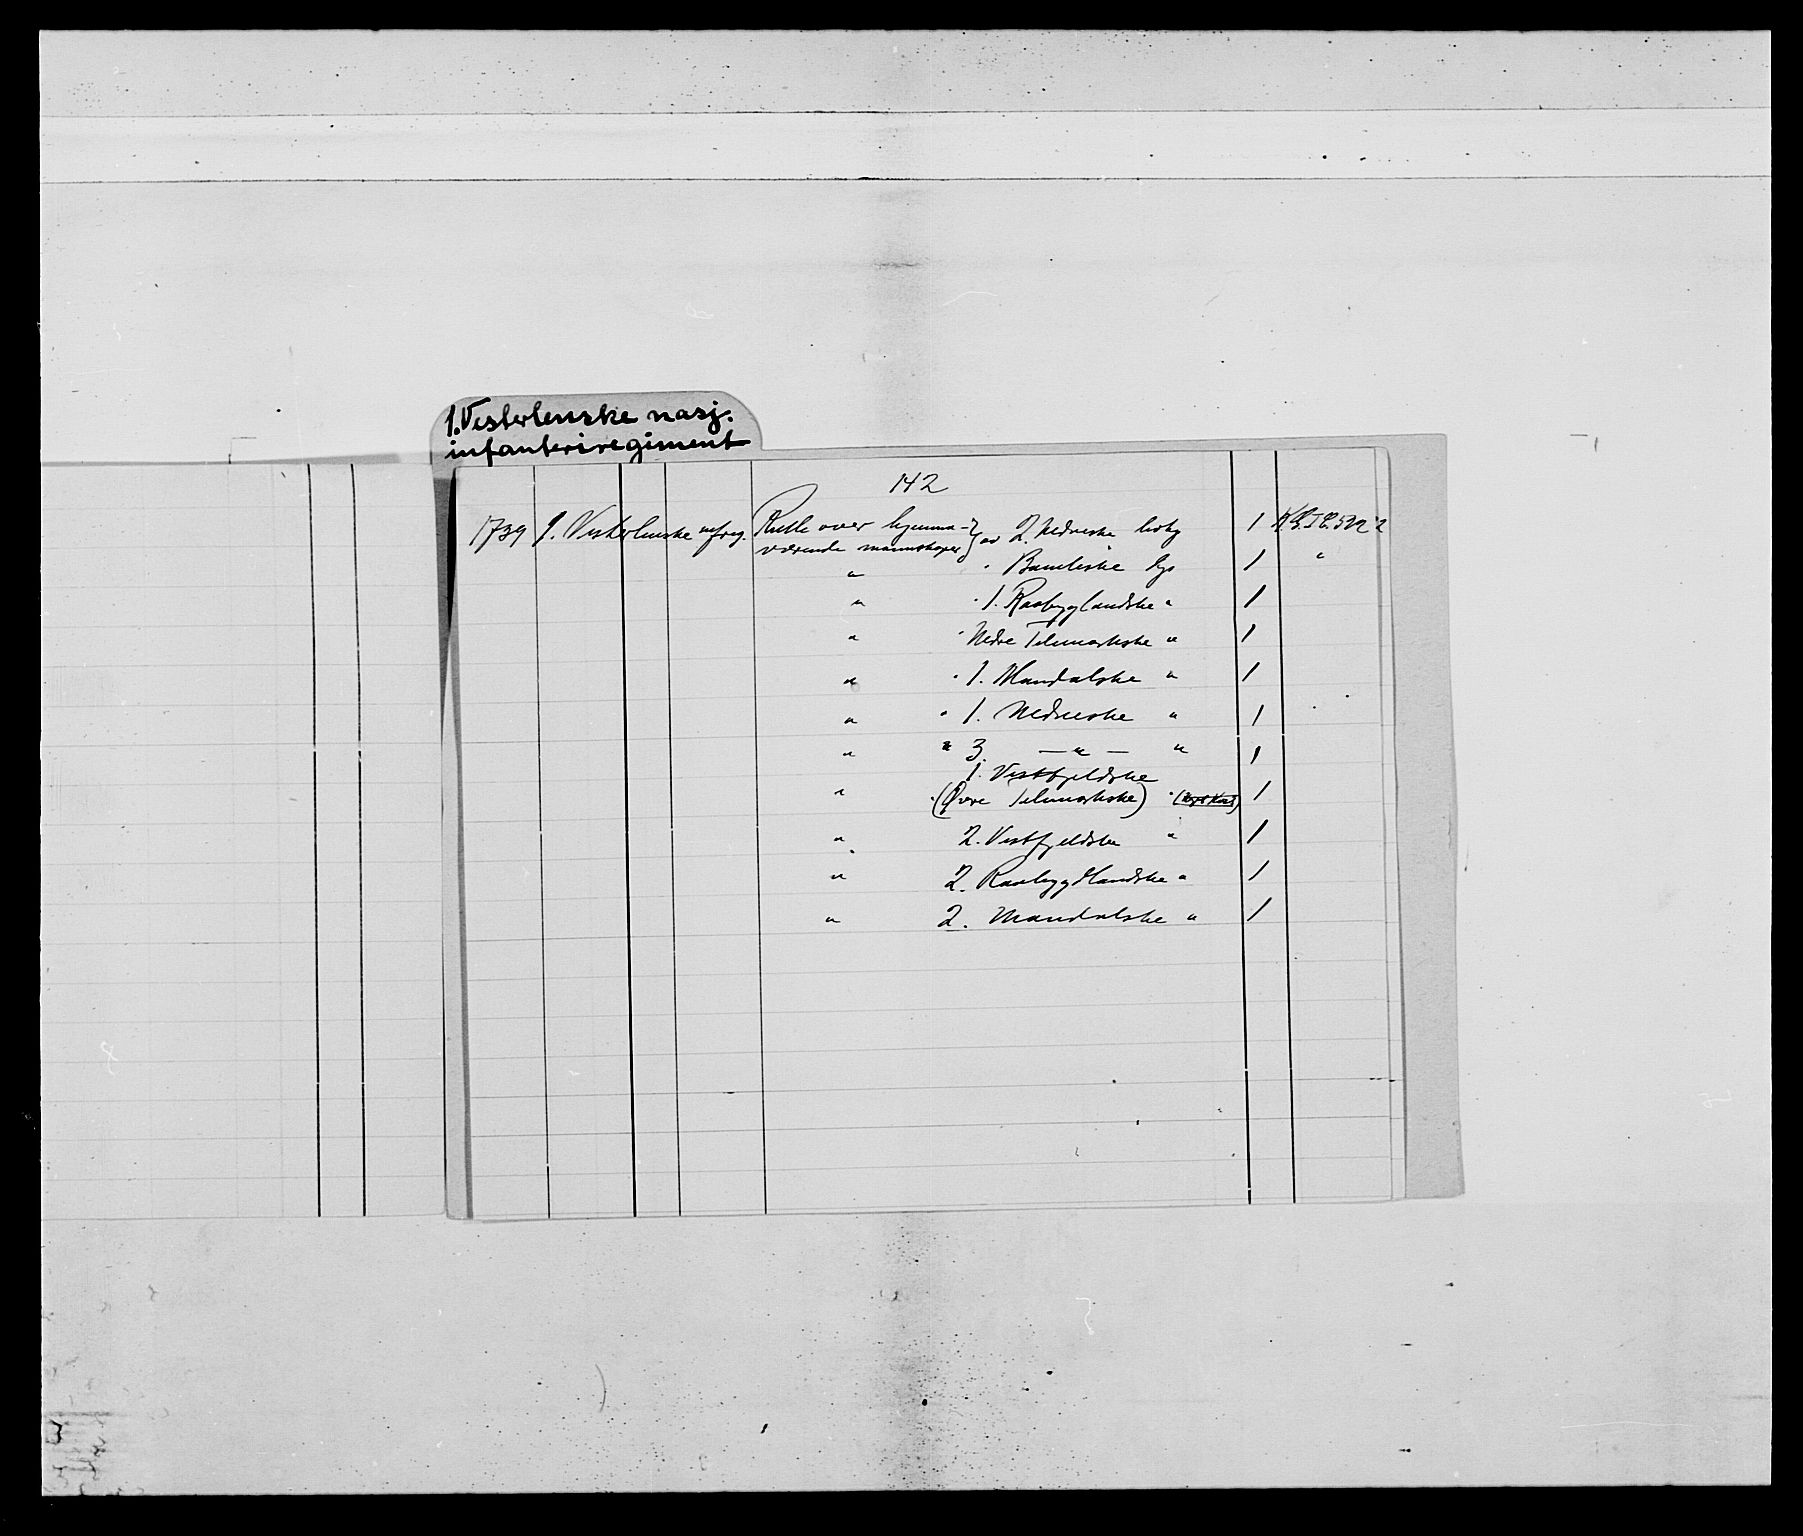 1. Vesterlenske nasj.
infanteriregiment
142
1739 1. Vesterlenske infreg. Rulle over hjemme-
værende mannskaper } av 2. Nedneske 1
" " Bambleske " 1 "
" " 1. Raabyggelandske " 1
" " Nedre Telemarkske " 1
" " 1. Mandalske " 1
" " 1. Nedneske " 1
" " 3. — " — " 1
1. Vestfjeldske
" " (Øvre Telemarkske) " 1
" 2. Vestfjeldske " 1
" 2. Raabyggelandske " 1
" 2. Mandalske " 1